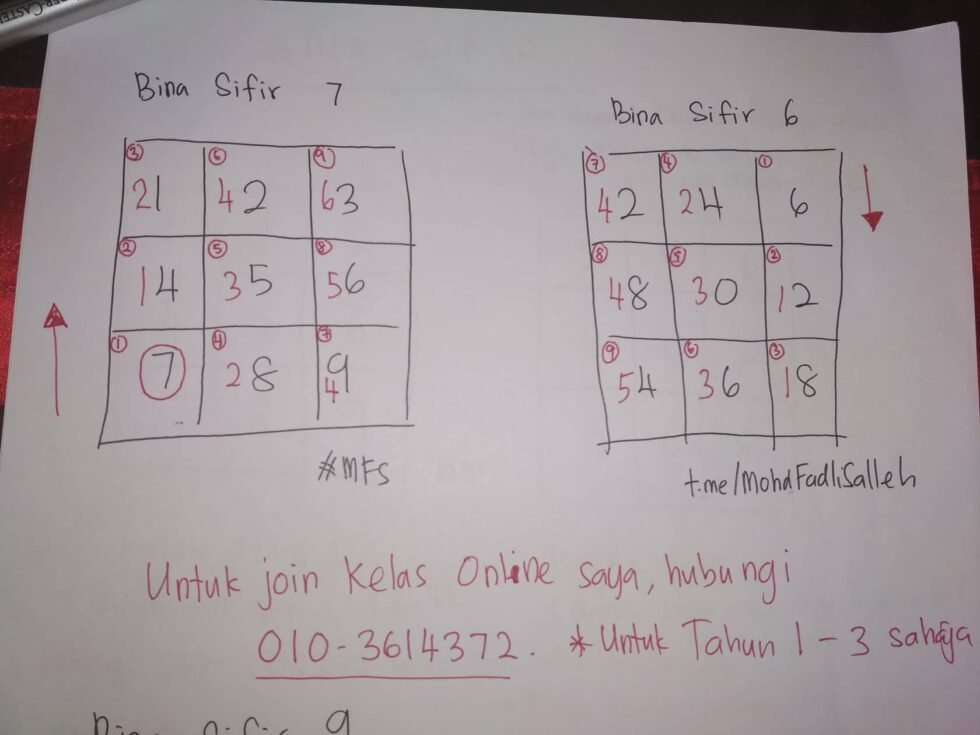 Bina Sifir 7
③ ⑥ ⑨
21 42 63
② ⑤ ⑧
14 35 56
① ④ ⑦
7 28 49
#MFS
Bina Sifir 6
⑦ ④ ①
42 24 6
⑧ ⑤ ②
48 30 12
⑨ ⑥ ③
54 36 18
t.me/MohdFadliSalleh
Untuk join Kelas Online saya, hubungi
010-3614372. * Untuk Tahun 1 - 3 sahaja
Bina Sifir 9